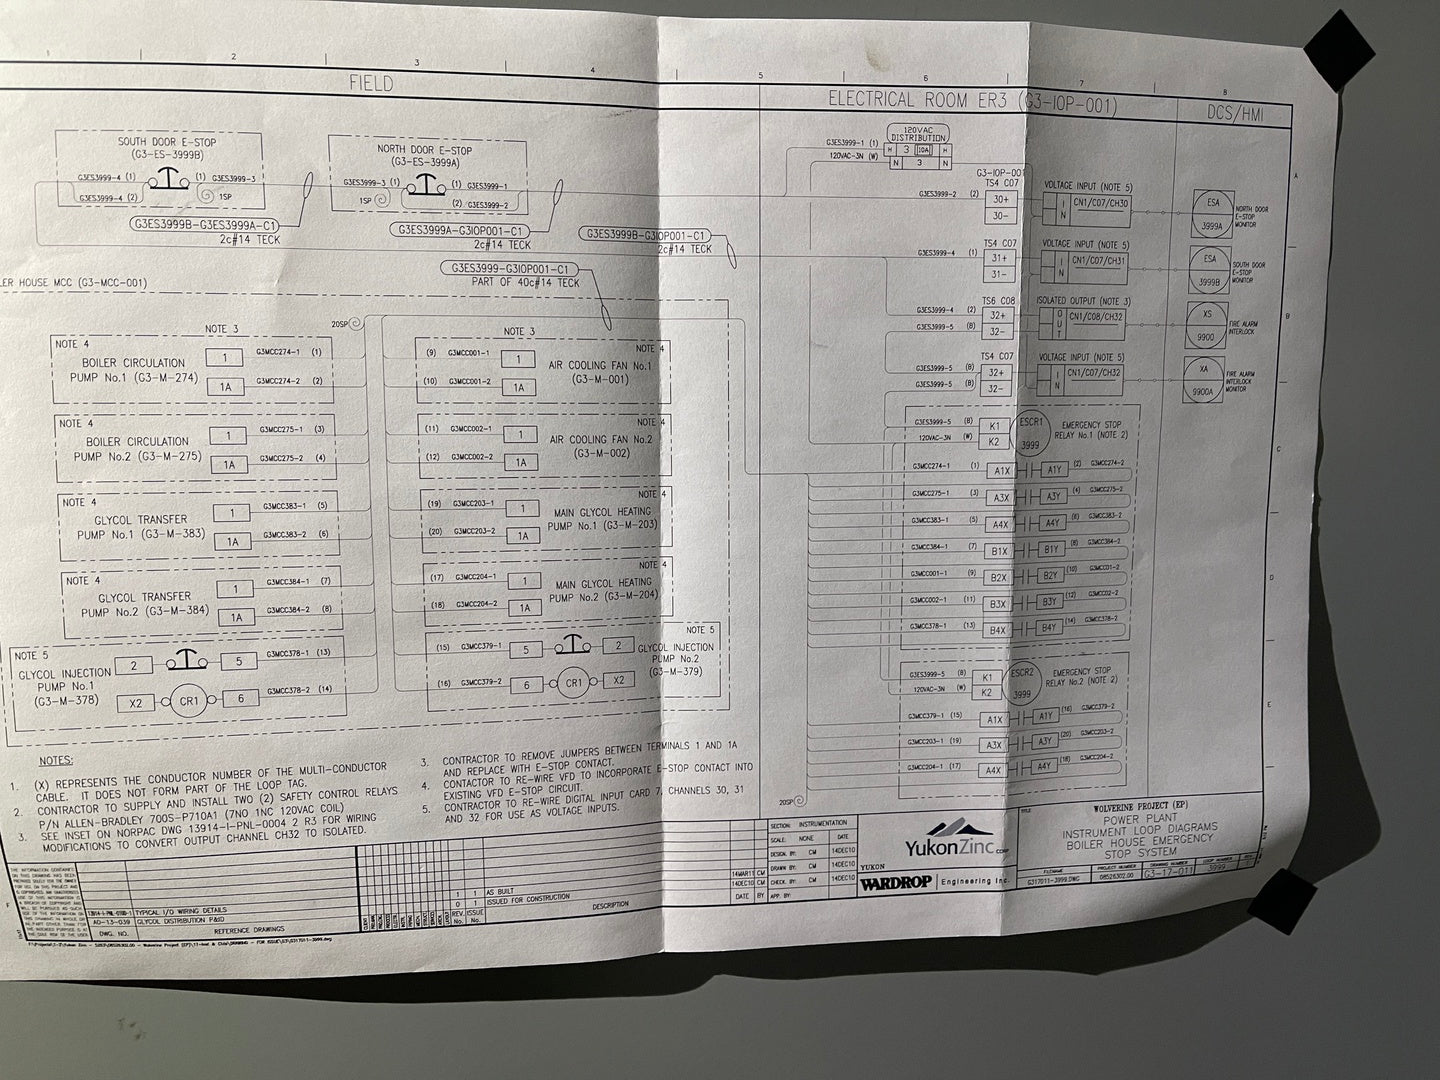 1 2 3 4 5 6 7 8
FIELD
ELECTRICAL ROOM ER3 (G3-IOP-001)
DCS/HMI
SOUTH DOOR E-STOP
(G3-ES-3999B)
G3ES3999-4 (1)
(1) G3ES3999-3
G3ES3999-4 (2)
1SP
G3ES3999B-G3ES3999A-C1
2c#14 TECK
NORTH DOOR E-STOP
(G3-ES-3999A)
G3ES3999-3 (1)
(1) G3ES3999-1
1SP
(2) G3ES3999-2
G3ES3999A-G3IOP001-C1
2c#14 TECK
G3ES3999B-G3IOP001-C1
2c#14 TECK
G3ES3999-G3IOP001-C1
PART OF 40c#14 TECK
LER HOUSE MCC (G3-MCC-001)
20SP
NOTE 3
NOTE 4
BOILER CIRCULATION
PUMP No.1 (G3-M-274)
1 G3MCC274-1 (1)
1A G3MCC274-2 (2)
NOTE 4
BOILER CIRCULATION
PUMP No.2 (G3-M-275)
1 G3MCC275-1 (3)
1A G3MCC275-2 (4)
NOTE 4
GLYCOL TRANSFER
PUMP No.1 (G3-M-383)
1 G3MCC383-1 (5)
1A G3MCC383-2 (6)
NOTE 4
GLYCOL TRANSFER
PUMP No.2 (G3-M-384)
1 G3MCC384-1 (7)
1A G3MCC384-2 (8)
NOTE 5
GLYCOL INJECTION
PUMP No.1
(G3-M-378)
2 5 G3MCC378-1 (13)
X2 CR1 6 G3MCC378-2 (14)
NOTE 3
NOTE 4
(9) G3MCC001-1 1
(10) G3MCC001-2 1A
AIR COOLING FAN No.1
(G3-M-001)
NOTE 4
(11) G3MCC002-1 1
(12) G3MCC002-2 1A
AIR COOLING FAN No.2
(G3-M-002)
NOTE 4
(19) G3MCC203-1 1
(20) G3MCC203-2 1A
MAIN GLYCOL HEATING
PUMP No.1 (G3-M-203)
NOTE 4
(17) G3MCC204-1 1
(18) G3MCC204-2 1A
MAIN GLYCOL HEATING
PUMP No.2 (G3-M-204)
NOTE 5
(15) G3MCC379-1 5 2
(16) G3MCC379-2 6 CR1 X2
GLYCOL INJECTION
PUMP No.2
(G3-M-379)
120VAC
DISTRIBUTION
G3ES3999-1 (1) H 3 10A H
120VAC-3N (W) N 3 N
G3-IOP-001
TS4 C07
G3ES3999-2 (2) 30+
30-
VOLTAGE INPUT (NOTE 5)
IN CN1/C07/CH30
ESA
3999A
NORTH DOOR
E-STOP
MONITOR
TS4 C07
G3ES3999-4 (1) 31+
31-
VOLTAGE INPUT (NOTE 5)
IN CN1/C07/CH31
ESA
3999B
SOUTH DOOR
E-STOP
MONITOR
TS6 C08
G3ES3999-4 (2) 32+
G3ES3999-5 (B) 32-
ISOLATED OUTPUT (NOTE 3)
OUT CN1/C08/CH32
XS
9900
FIRE ALARM
INTERLOCK
TS4 C07
G3ES3999-5 (B) 32+
G3ES3999-5 (B) 32-
VOLTAGE INPUT (NOTE 5)
IN CN1/C07/CH32
XA
9900A
FIRE ALARM
INTERLOCK
MONITOR
G3ES3999-5 (B) K1
120VAC-3N (W) K2
ESCR1
3999
EMERGENCY STOP
RELAY No.1 (NOTE 2)
G3MCC274-1 (1) A1X A1Y (2) G3MCC274-2
G3MCC275-1 (3) A3X A3Y (4) G3MCC275-2
G3MCC383-1 (5) A4X A4Y (6) G3MCC383-2
G3MCC384-1 (7) B1X B1Y (8) G3MCC384-2
G3MCC001-1 (9) B2X B2Y (10) G3MCC01-2
G3MCC002-1 (11) B3X B3Y (12) G3MCC02-2
G3MCC378-1 (13) B4X B4Y (14) G3MCC378-2
G3ES3999-5 (B) K1
120VAC-3N (W) K2
ESCR2
3999
EMERGENCY STOP
RELAY No.2 (NOTE 2)
G3MCC379-1 (15) A1X A1Y (16) G3MCC379-2
G3MCC203-1 (19) A3X A3Y (20) G3MCC203-2
G3MCC204-1 (17) A4X A4Y (18) G3MCC204-2
20SP
A
B
C
D
E
NOTES:
1. (X) REPRESENTS THE CONDUCTOR NUMBER OF THE MULTI-CONDUCTOR
CABLE. IT DOES NOT FORM PART OF THE LOOP TAG.
2. CONTRACTOR TO SUPPLY AND INSTALL TWO (2) SAFETY CONTROL RELAYS
P/N ALLEN-BRADLEY 700S-P710A1 (7NO 1NC 120VAC COIL)
3. SEE INSET ON NORPAC DWG 13914-I-PNL-0004 2 R3 FOR WIRING
MODIFICATIONS TO CONVERT OUTPUT CHANNEL CH32 TO ISOLATED.
3. CONTRACTOR TO REMOVE JUMPERS BETWEEN TERMINALS 1 AND 1A
AND REPLACE WITH E-STOP CONTACT.
4. CONTACTOR TO RE-WIRE VFD TO INCORPORATE E-STOP CONTACT INTO
EXISTING VFD E-STOP CIRCUIT.
5. CONTRACTOR TO RE-WIRE DIGITAL INPUT CARD 7, CHANNELS 30, 31
AND 32 FOR USE AS VOLTAGE INPUTS.
TYPICAL I/O WIRING DETAILS
AD-13-039 GLYCOL DISTRIBUTION P&ID
DWG. NO. REFERENCE DRAWINGS
1 1 AS BUILT
0 1 ISSUED FOR CONSTRUCTION
REV. No. ISSUE No. DESCRIPTION
14MAR11 CM
14DEC10 CM
DATE BY
SECTION: INSTRUMENTATION
SCALE: NONE DATE
DESIGN. BY: CM 14DEC10
DRAWN BY: CM 14DEC10
CHECK. BY: CM 14DEC10
APP. BY:
YukonZinc CORP
YUKON
WARDROP Engineering Inc.
TITLE
WOLVERINE PROJECT (EP)
POWER PLANT
INSTRUMENT LOOP DIAGRAMS
BOILER HOUSE EMERGENCY
STOP SYSTEM
FILENAME PROJECT NUMBER DRAWING NUMBER LOOP NUMBER
G317011-3999.DWG 08526302.00 G3-17-011 3999